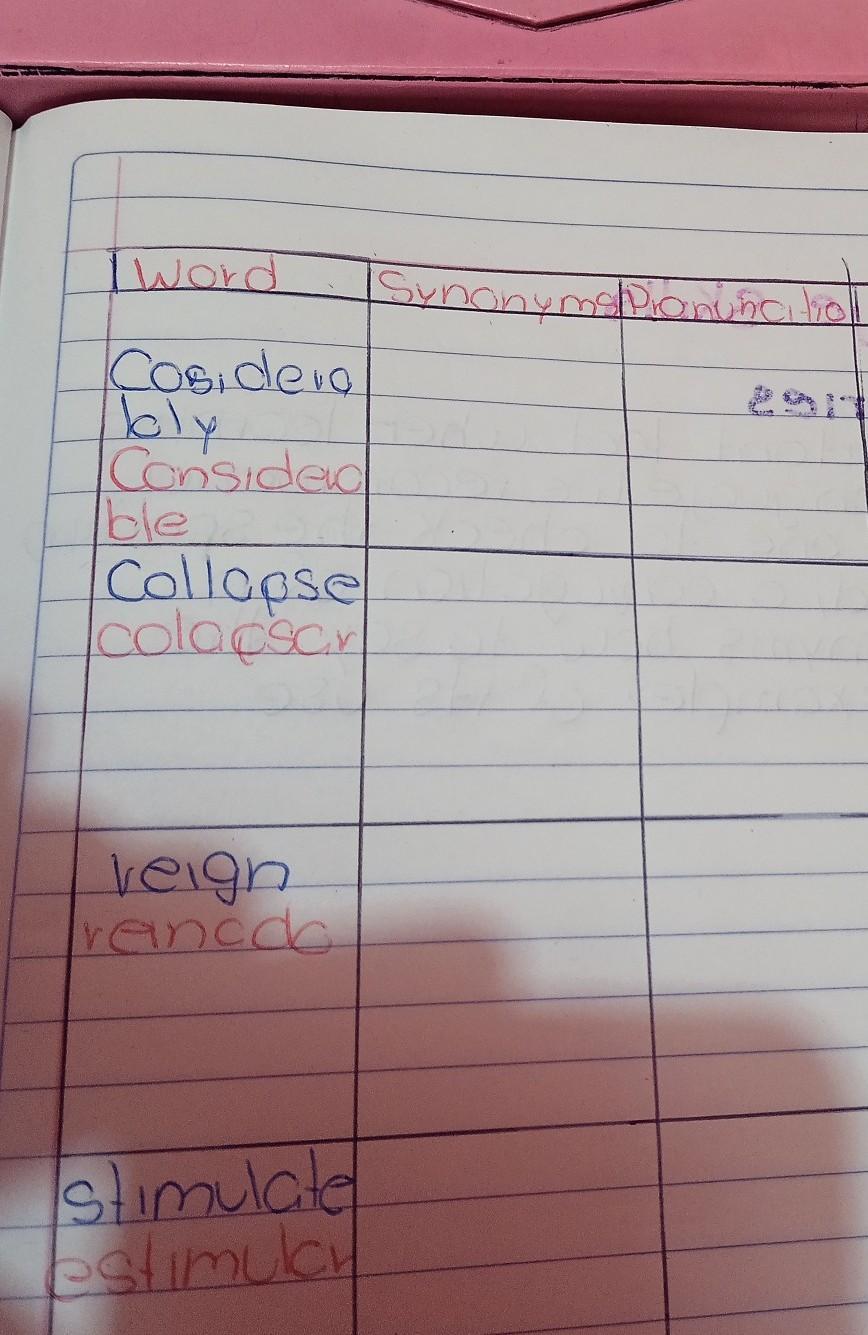 Word Synonyms Pronuncitio
Cosidera
bly
Considera
ble
Collapse
colapsar
reign
reinado
stimulate
estimular